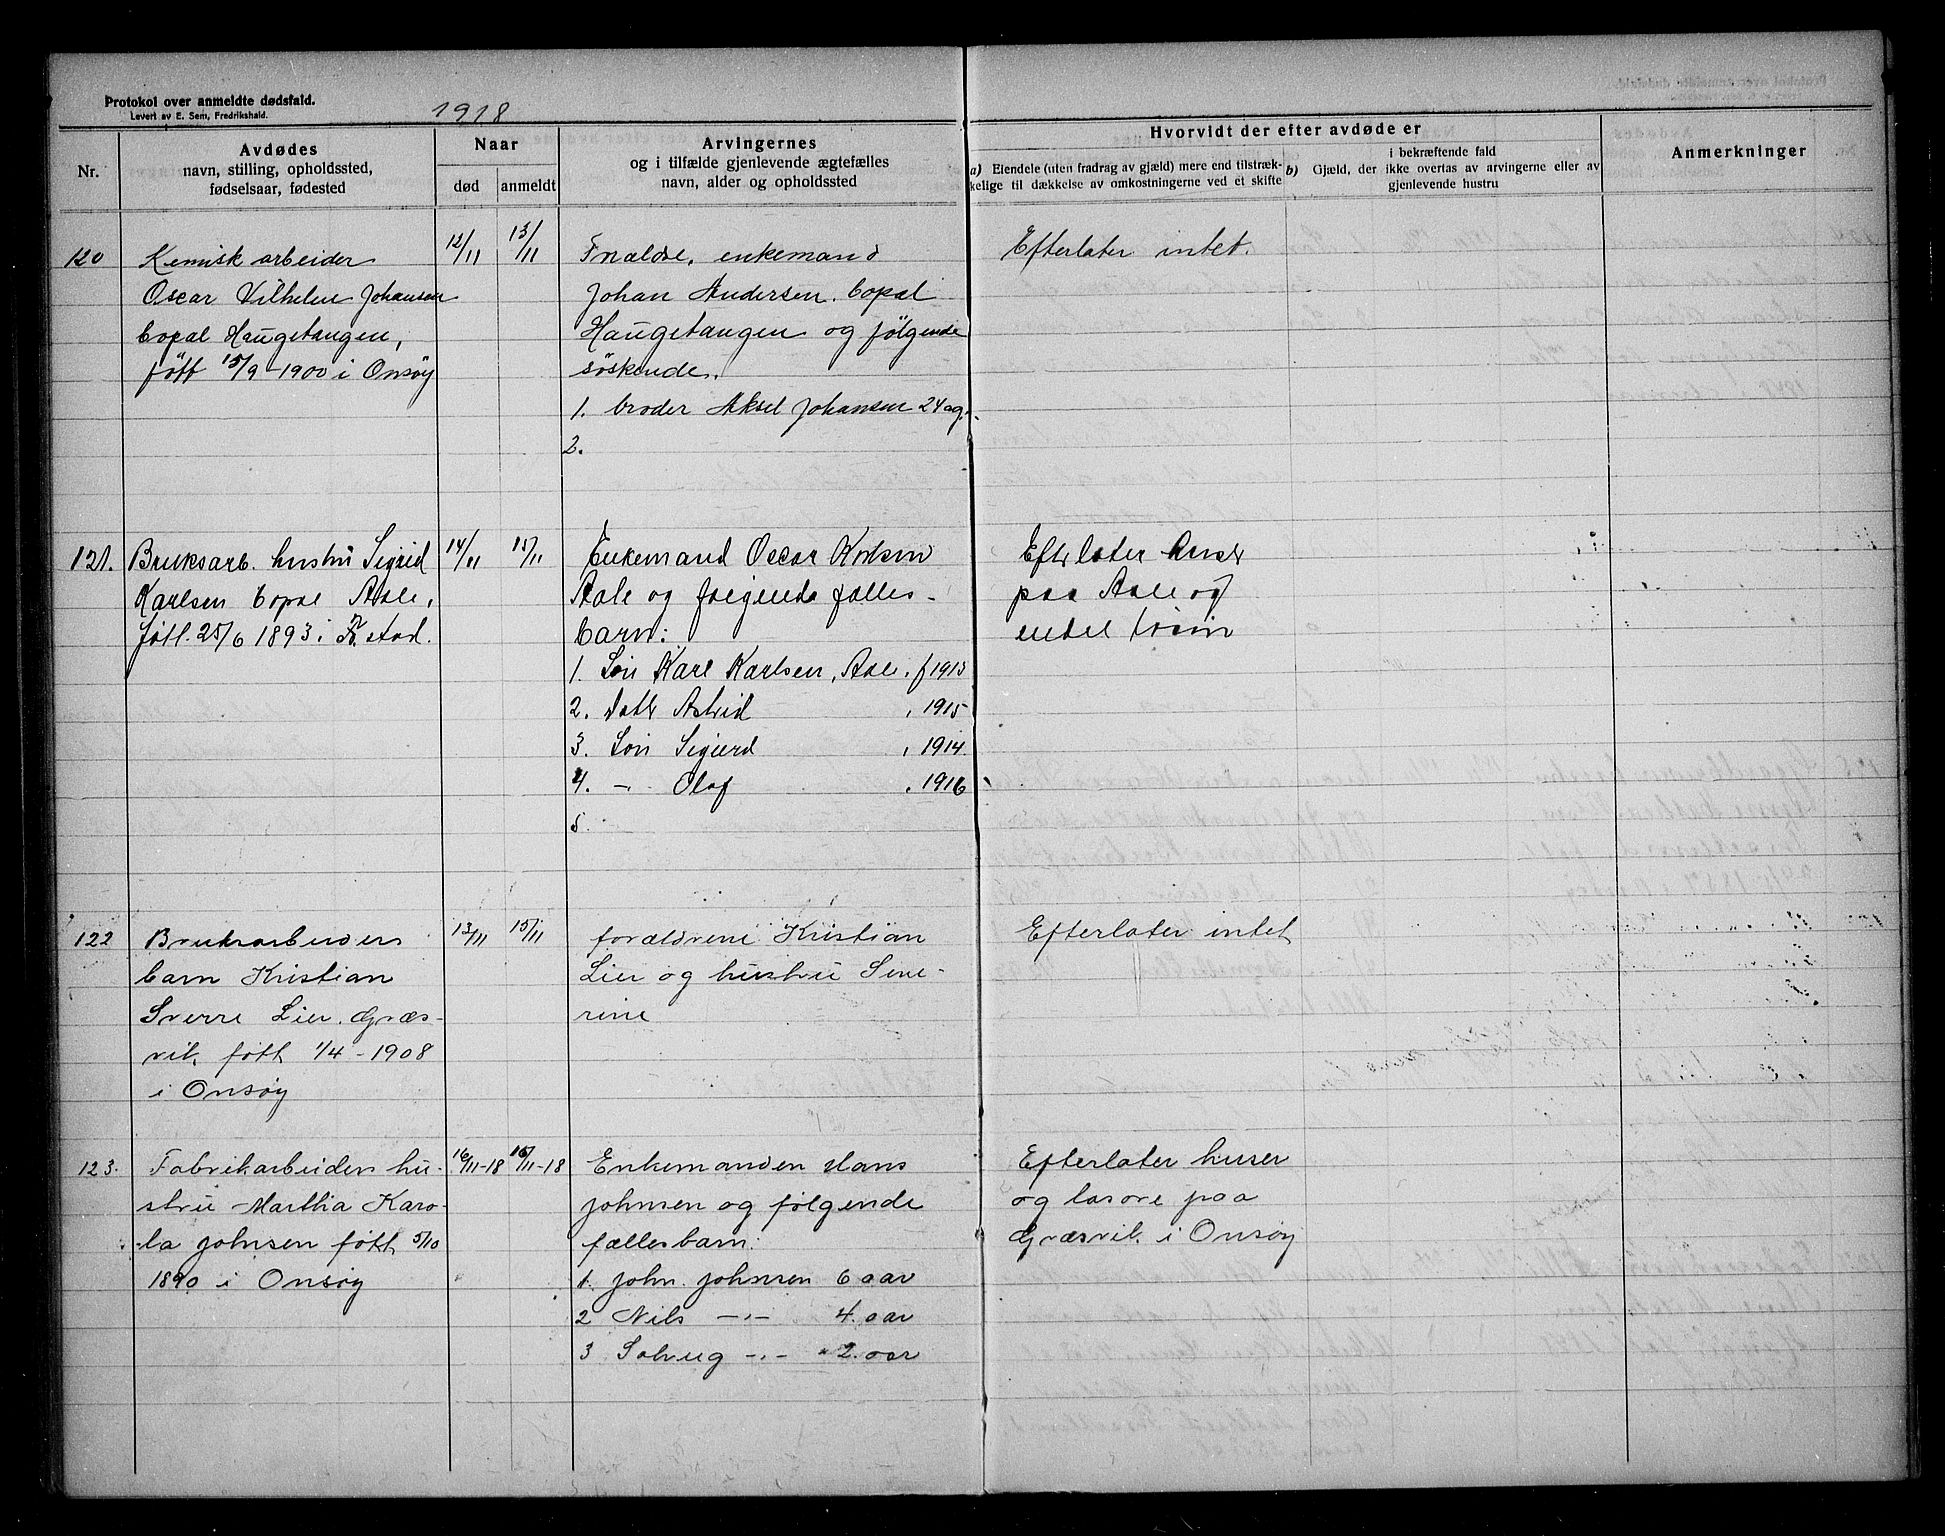 Protokol over anmeldte dødsfald.
Levert av E. Sem, Fredrikshald.
1918
Nr.
Avdødes
navn, stilling, opholdssted,
fødselsaar, fødested
Naar
død
anmeldt
Arvingernes
og i tilfælde gjenlevende ægtefælles
navn, alder og opholdssted
Hvorvidt der efter avdøde er
a) Eiendele (uten fradrag av gjæld) mere end tilstræk-
kelige til dækkelse av omkostningerne ved et skifte
b) Gjæld, der i bekræftende fald
ikke overtas av arvingerne eller av
gjenlevende hustru
Anmerkninger
120
Kemisk arbeider
Oscar Vilhelm Johansen
Copal Haugetangen,
født 15/9-1900 i Onsøy
12/11
13/11
Forældre, enkemand
Johan Andersen. Copal
Haugetangen og følgende
søskende.
1. broder Aksel Johansen 24 ag.
2.
Efterlater intet.
121.
Bruksarb. hustru Sigrid
Karlsen Copal Aale,
født 25/6 1893 i Fr.stad.
14/11
15/11
Enkemand Oscar Karlsen
Aale og følgende fælles-
barn:
1. Søn Karl Karlsen, Aale. f 1913
2. Datr Astrid , 1915
3. Søn Sigurd , 1914
4. -- Olaf , 1916
5.
Efterlater huse
paa Aale og
endel løsøre
122
Bruksarbeiders
barn Kristian
Sverre Lier. Græs-
vik født 1/4-1908
i Onsøy
13/11
15/11
forældrene Kristian
Lier og hustru Seve-
rine
Efterlater intet
123.
Fabrikarbeiders hu-
stru Martha Karo-
la Johnsen født 5/10
1890 i Onsøy
16/11-18
16/11-18
Enkemanden Hans
Johnsen og følgende
fællesbarn:
1. John. Johnsen 6 aar
2 Nils -"- 4. aar
3 Solveig -"- 2. aar
Efterlater huser
og løsøre paa
Græsvik i Onsøy